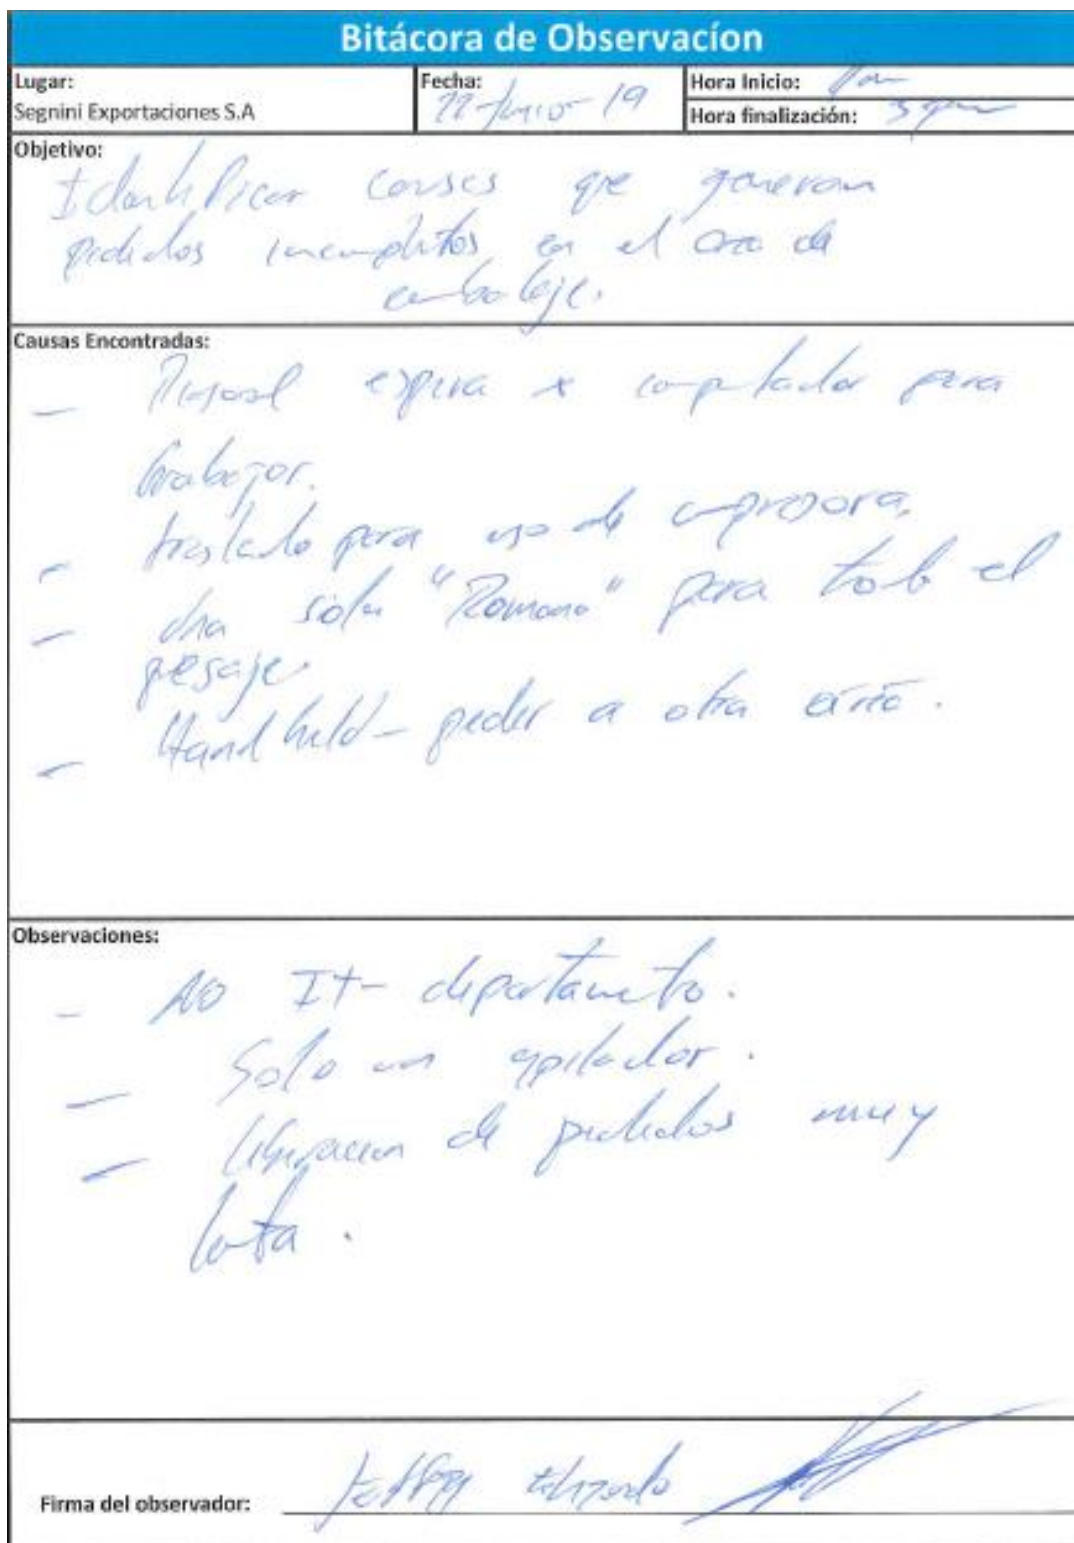 Bitácora de Observacíon
Lugar:
Segnini Exportaciones S.A
Fecha:
22-Junio-19
Hora Inicio:
Hora finalización: 3 pm
Objetivo:
Identificar causas que generan
pedidos incompletos en el area de
embalaje.
Causas Encontradas:
- espera x computador para
trabajar.
- traslado para uso de impresora.
- Una sola "Romana" para todo el
pesaje
- Hand held - pedir a otra área.
Observaciones:
- NO IT- departamento.
- Solo un apilador.
- liberacion de pedidos muy
lenta.
Firma del observador: